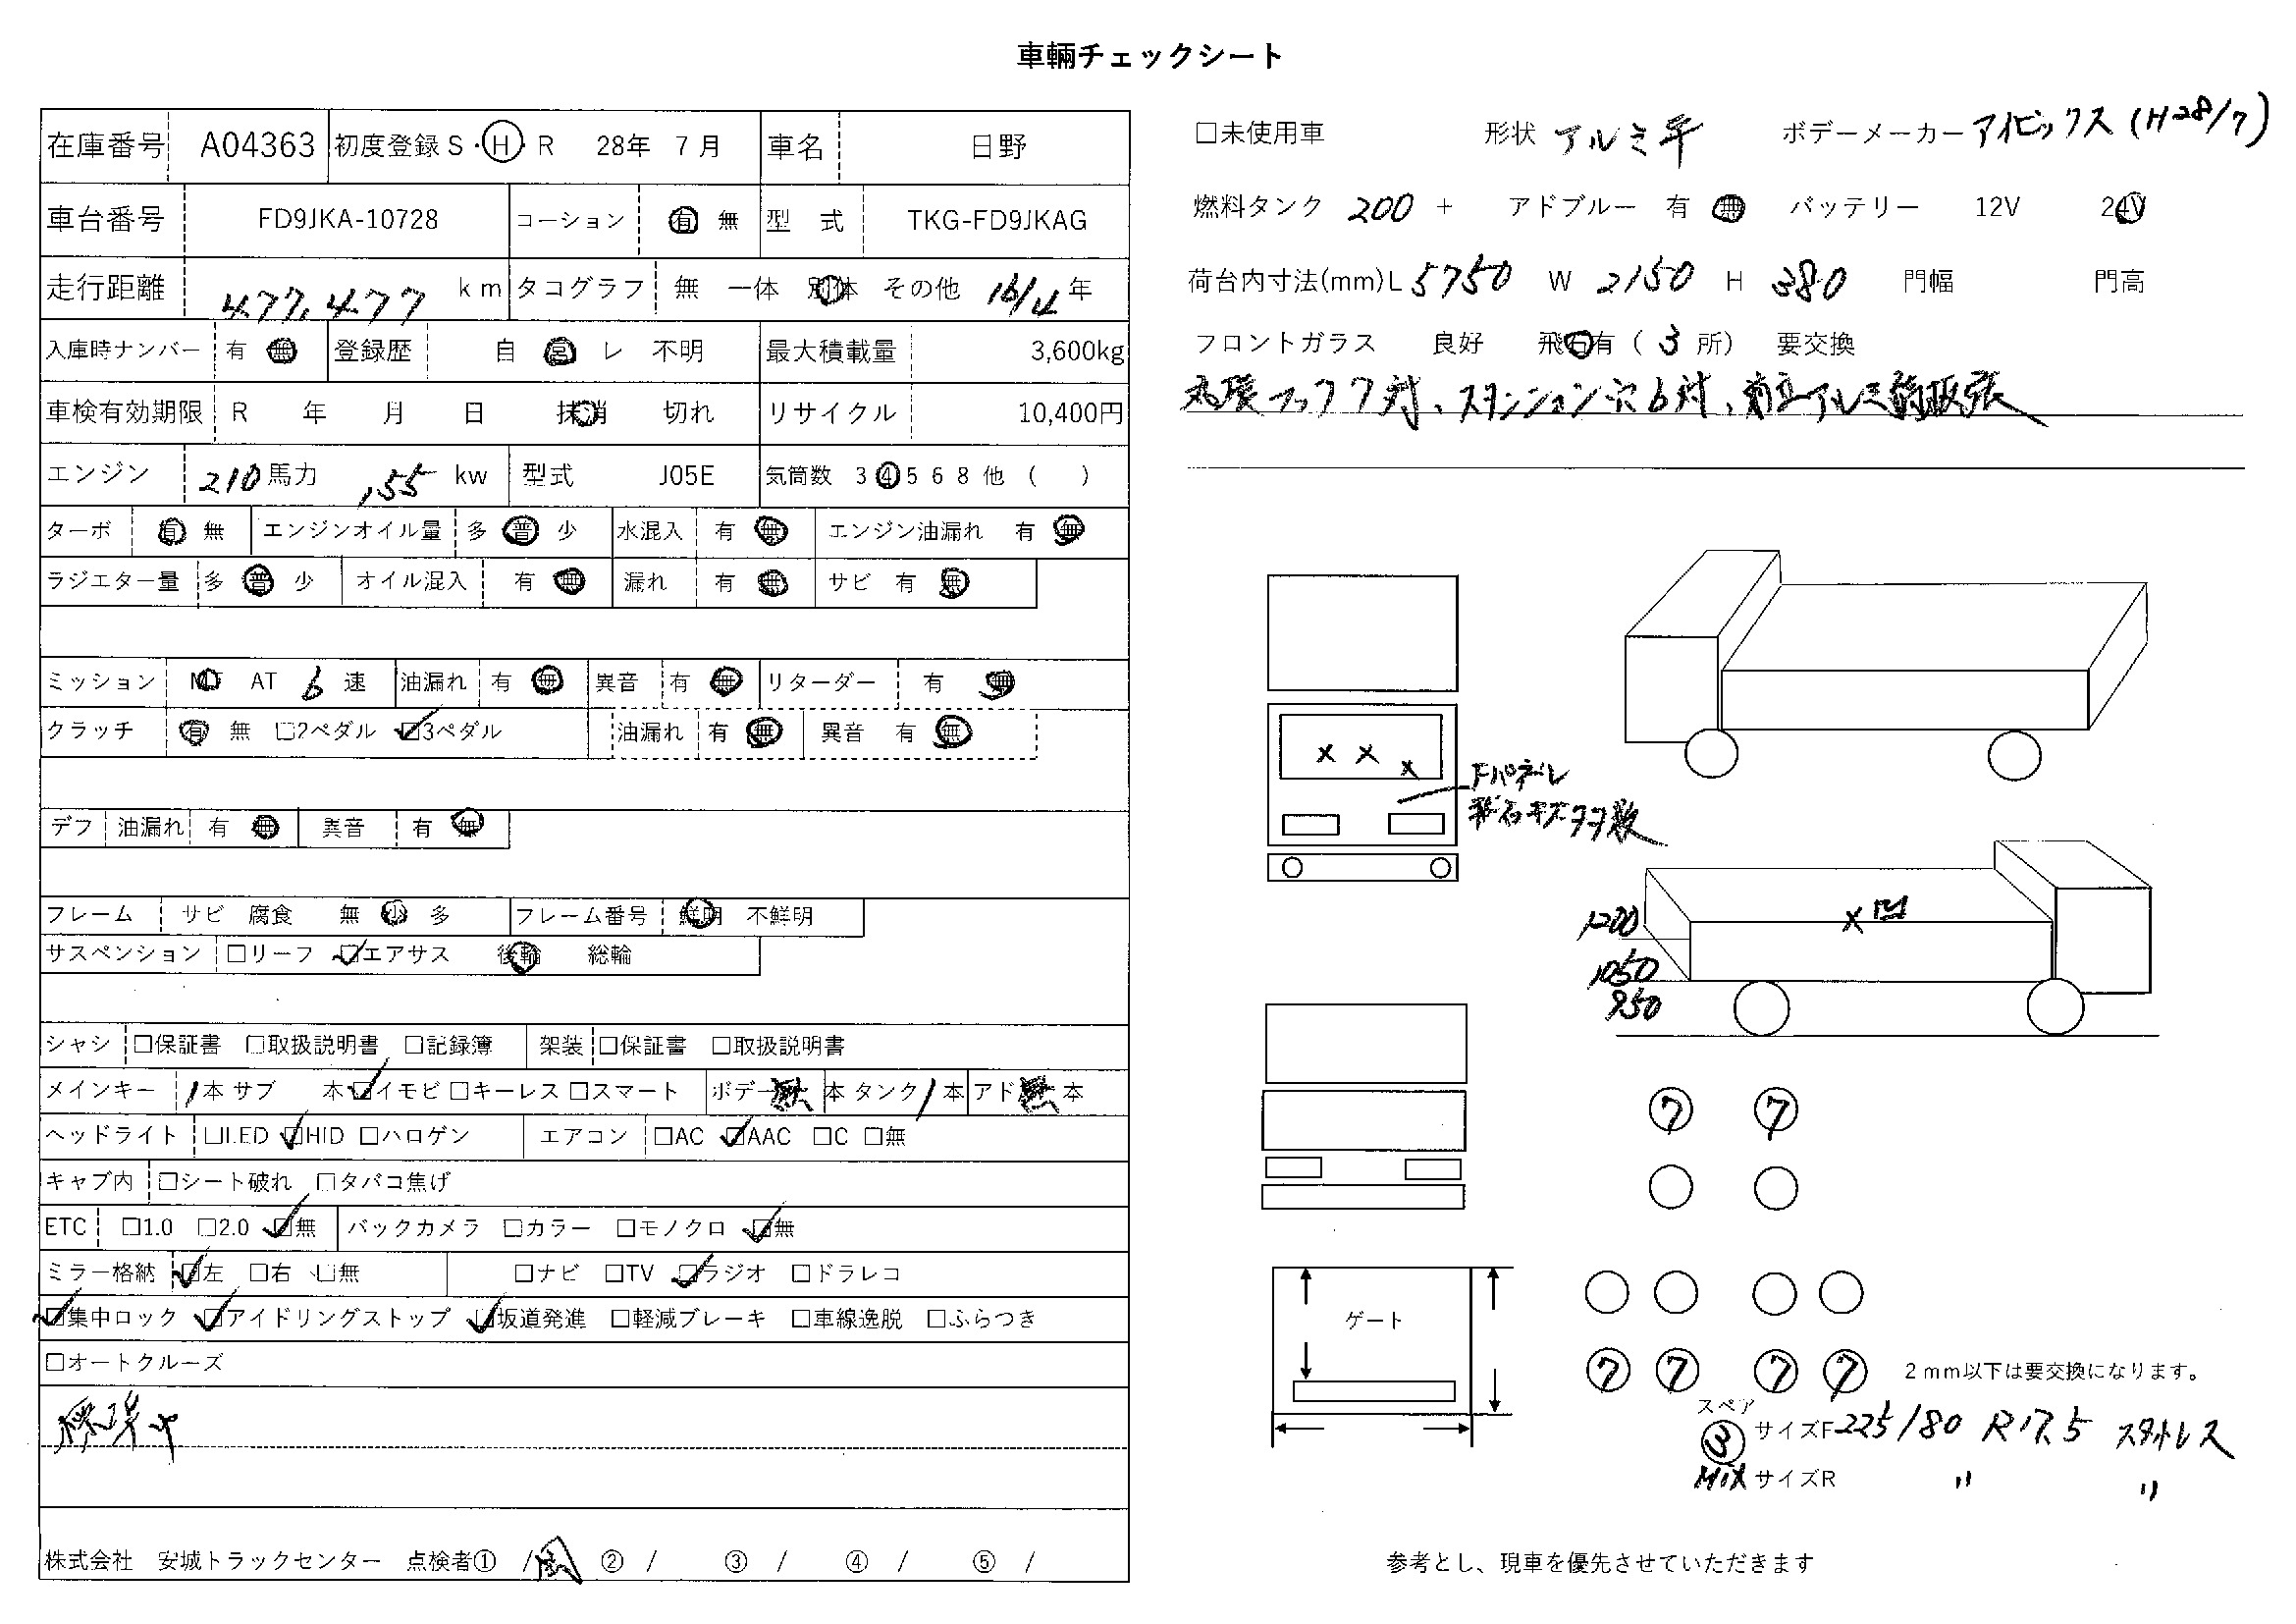 車輛チェックシート
在庫番号 A04363 初度登録 S・H・R 28年 7月 車名 日野
車台番号 FD9JKA-10728 コーション 有 無 型 式 TKG-FD9JKAG
走行距離 477,477 km タコグラフ 無 一体 別体 その他 16/4 年
入庫時ナンバー 有 無 登録歴 自 営 レ 不明 最大積載量 3,600kg
車検有効期限 R 年 月 日 抹消 切れ リサイクル 10,400円
エンジン 210 馬力 155 kw 型式 J05E 気筒数 3 4 5 6 8 他 ( )
ターボ 有 無 エンジンオイル量 多 普 少 水混入 有 無 エンジン油漏れ 有 無
ラジエター量 多 普 少 オイル混入 有 無 漏れ 有 無 サビ 有 無
ミッション MT AT 6 速 油漏れ 有 無 異音 有 無 リターダー 有 無
クラッチ 有 無 □2ペダル ☑3ペダル 油漏れ 有 無 異音 有 無
デフ 油漏れ 有 無 異音 有 無
フレーム サビ 腐食 無 少 多 フレーム番号 鮮明 不鮮明
サスペンション □リーフ ☑エアサス 後輪 総輪
シャシ □保証書 □取扱説明書 □記録簿 架装 □保証書 □取扱説明書
メインキー 1本 サブ 本 ☑イモビ □キーレス □スマート ボデー 無 本 タンク 1 本 アド 無 本
ヘッドライト □LED ☑HID □ハロゲン エアコン □AC ☑AAC □C □無
キャブ内 □シート破れ □タバコ焦げ
ETC □1.0 □2.0 ☑無 バックカメラ □カラー □モノクロ ☑無
ミラー格納 ☑左 □右 □無 □ナビ □TV ☑ラジオ □ドラレコ
☑集中ロック ☑アイドリングストップ ☑坂道発進 □軽減ブレーキ □車線逸脱 □ふらつき
□オートクルーズ
標準キ
株式会社 安城トラックセンター 点検者① / ② / ③ / ④ / ⑤ /
□未使用車 形状 アルミ平 ボデーメーカー アイビックス (H28/7)
燃料タンク 200 + アドブルー 有 無 バッテリー 12V 24V
荷台内寸法(mm)L 5750 W 2150 H 380 門幅 門高
フロントガラス 良好 飛石有 ( 3 所) 要交換
丸環フック7対、スタンション穴6対、前立アルミ縞板張
× × ×
Fパネル
飛石キズ多数
×凹
1200
1050
950
⑦ ⑦
ゲート
⑦ ⑦ ⑦ ⑦ 2mm以下は要交換になります。
スペア
③ サイズF 225/80 R17.5 スタットレス
MIX サイズR 〃 〃
参考とし、現車を優先させていただきます